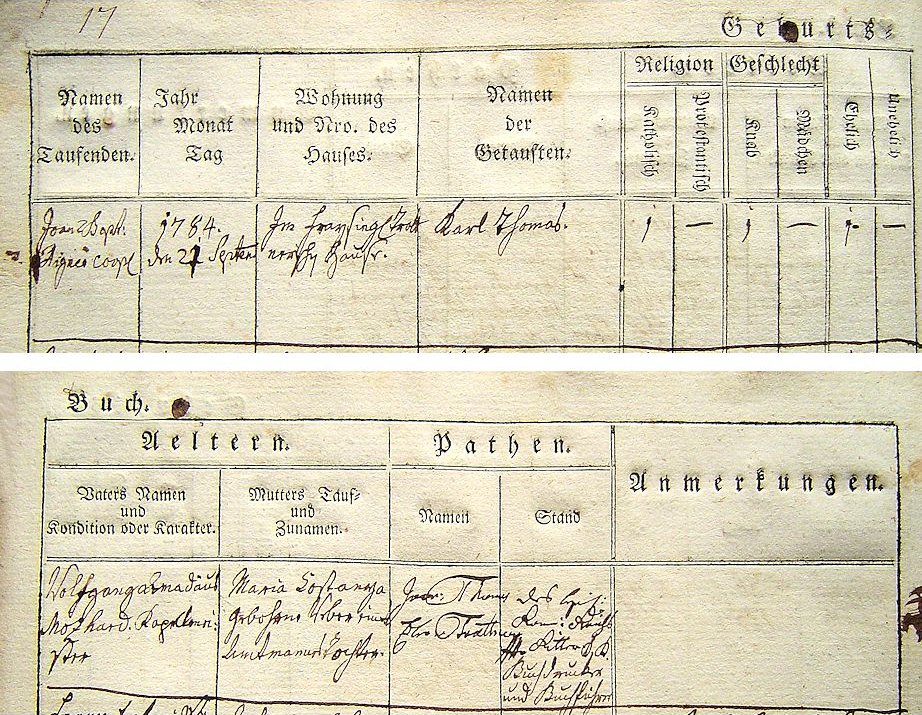 17
Geburts-
Namen des Taufenden.
Jahr Monat Tag
Wohnung und Nro. des Hauses.
Namen der Getauften.
Religion
Katholisch
Protestantisch
Geschlecht
Knab
Mädchen
Ehelich
Unehelich
Joan Bapt:
coop
1784.
den 21 Septem
Im
Hauß.
Karl Thomas.
1 — 1 — 1 —
Buch.
Aeltern.
Vaters Namen und Kondition oder Karakter.
Mutters Tauf- und Zunamen.
Pathen.
Namen
Stand
Anmerkungen.
Wolfgang Amadäus
Mozhard. Kapellmei-
ster
Maria Costanzia
gebohrne Weber eines
Amtmanns Tochter.
Joan: Thomas
Edler Trattner
des
Röm:
Ritter
Buchdrucker
und Buchführer